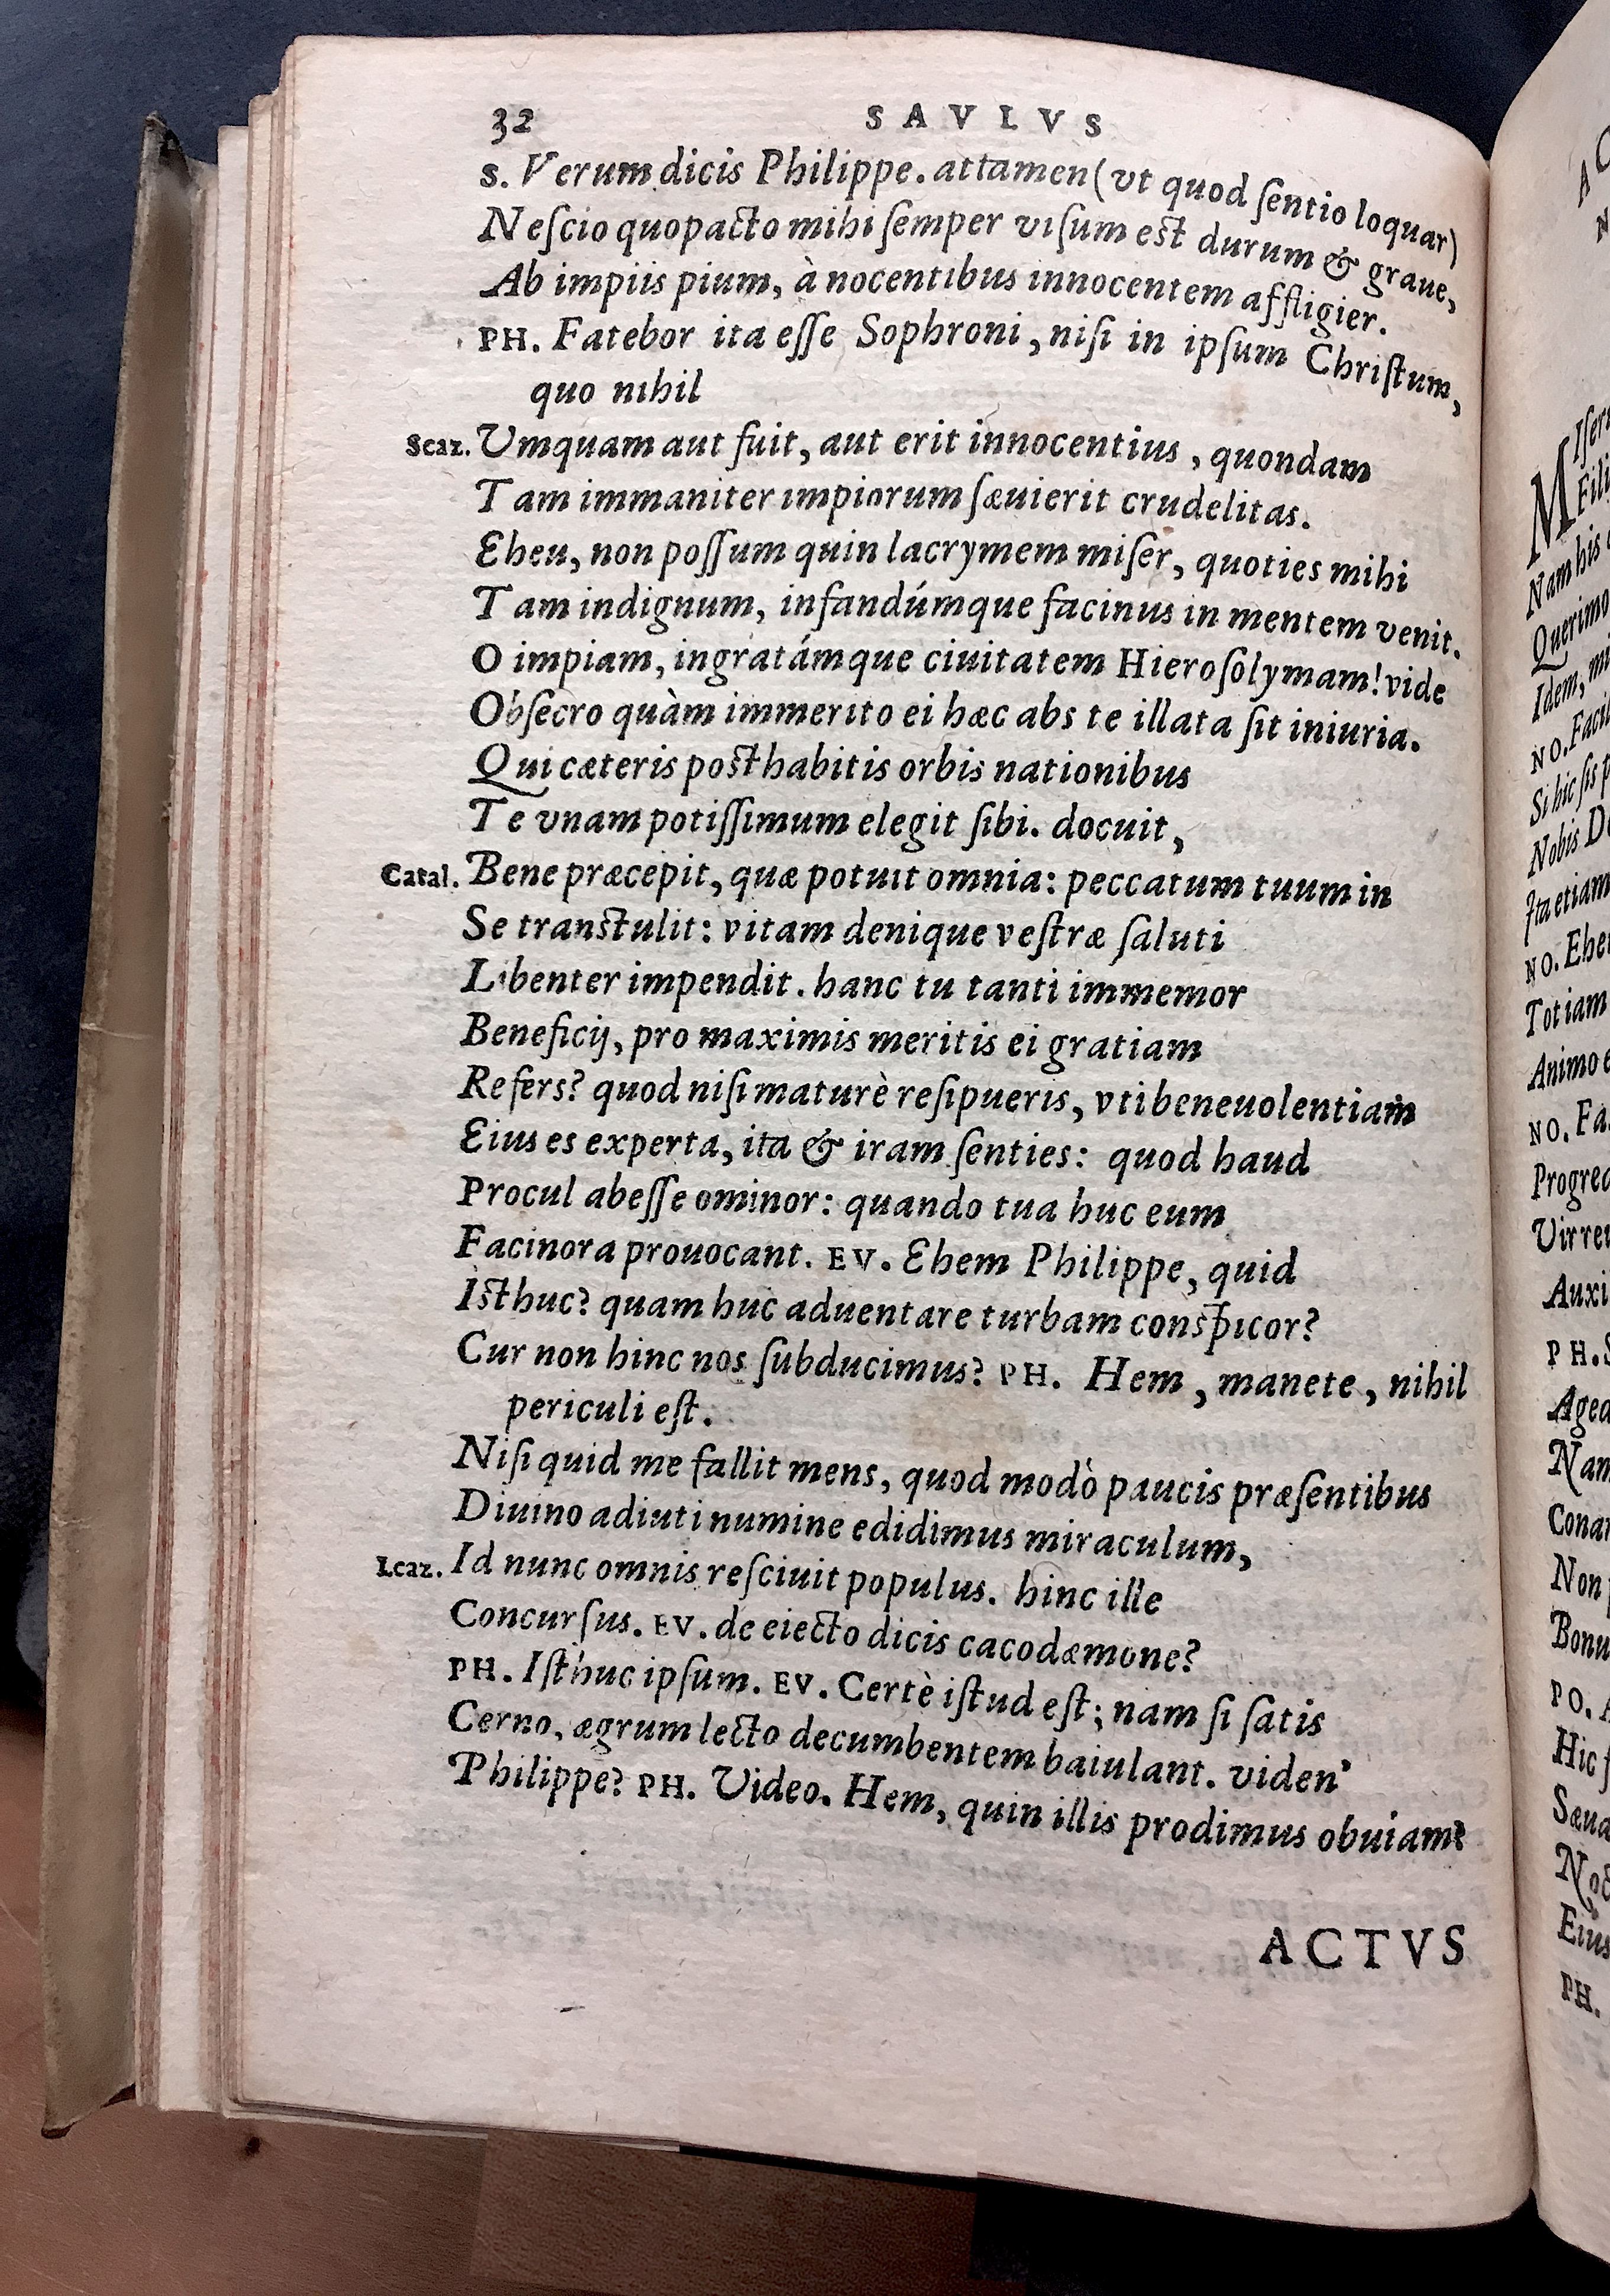 32 SAVLVS
S. Verum dicis Philippe. attamen (vt quod ſentio loquar)
Neſcio quopacto mihi ſemper viſum est durum & graue,
Ab impiis pium, à nocentibus innocentem affligier.
PH. Fatebor ita eſſe Sophroni, niſi in ipſum Chriſtum,
quo nihil
Scaz. Vmquam aut fuit, aut erit innocentius, quondam
Tam immaniter impiorum ſæuierit crudelitas.
Eheu, non poſſum quin lacrymem miſer, quoties mihi
Tam indignum, infandúmque facinus in mentem venit.
O impiam, ingratámque ciuitatem Hieroſolymam! vide
Obſecro quàm immerito ei hæc abs te illata ſit iniuria.
Qui cæteris posthabitis orbis nationibus
Te vnam potiſſimum elegit ſibi. docuit,
Catal. Bene præcepit, quæ potuit omnia: peccatum tuum in
Se transtulit: vitam denique veſtræ ſaluti
Libenter impendit. hanc tu tanti immemor
Beneficij, pro maximis meritis ei gratiam
Refers? quod niſi maturè reſipueris, vti beneuolentiam
Eius es experta, ita & iram ſenties: quod haud
Procul abeſſe ominor: quando tua huc eum
Facinora prouocant. EV. Ehem Philippe, quid
Isthuc? quam huc aduentare turbam conspicor?
Cur non hinc nos ſubducimus? PH. Hem, manete, nihil
periculi eſt.
Niſi quid me fallit mens, quod modò paucis præſentibus
Diuino adiuti numine edidimus miraculum,
Lcaz. Id nunc omnis reſciuit populus. hinc ille
Concurſus. EV. de eiecto dicis cacodæmone?
PH. Iſthuc ipſum. EV. Certè iſtud eſt; nam ſi ſatis
Cerno, ægrum lecto decumbentem baiulant. viden'
Philippe? PH. Video. Hem, quin illis prodimus obuiam?
ACTVS